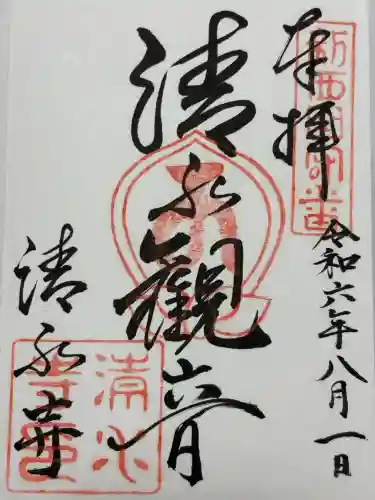 奉拝
令和六年八月一日
清水観音
清水寺
清水寺印